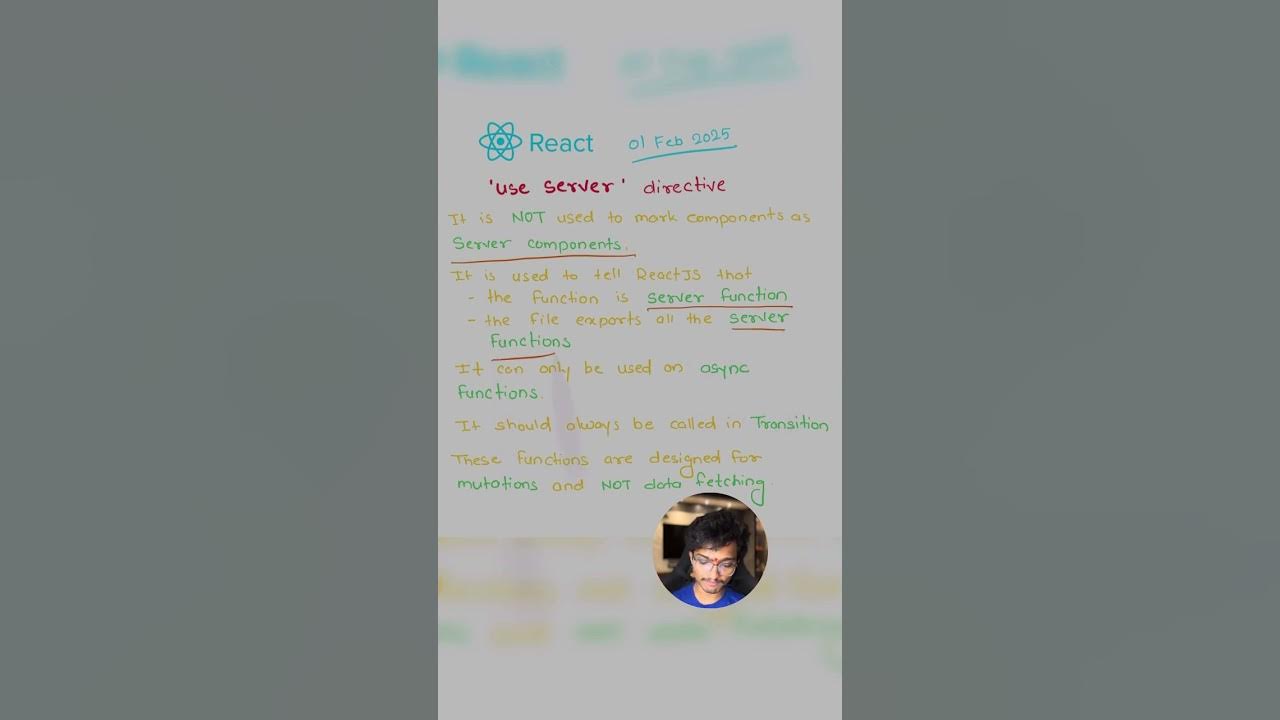 React 01 Feb 2025
'use server' directive
It is NOT used to mark components as
Server components.
It is used to tell ReactJS that
- the function is server function
- the file exports all the server
functions
It can only be used on async
functions.
It should always be called in Transition
These functions are designed for
mutations and NOT data fetching.